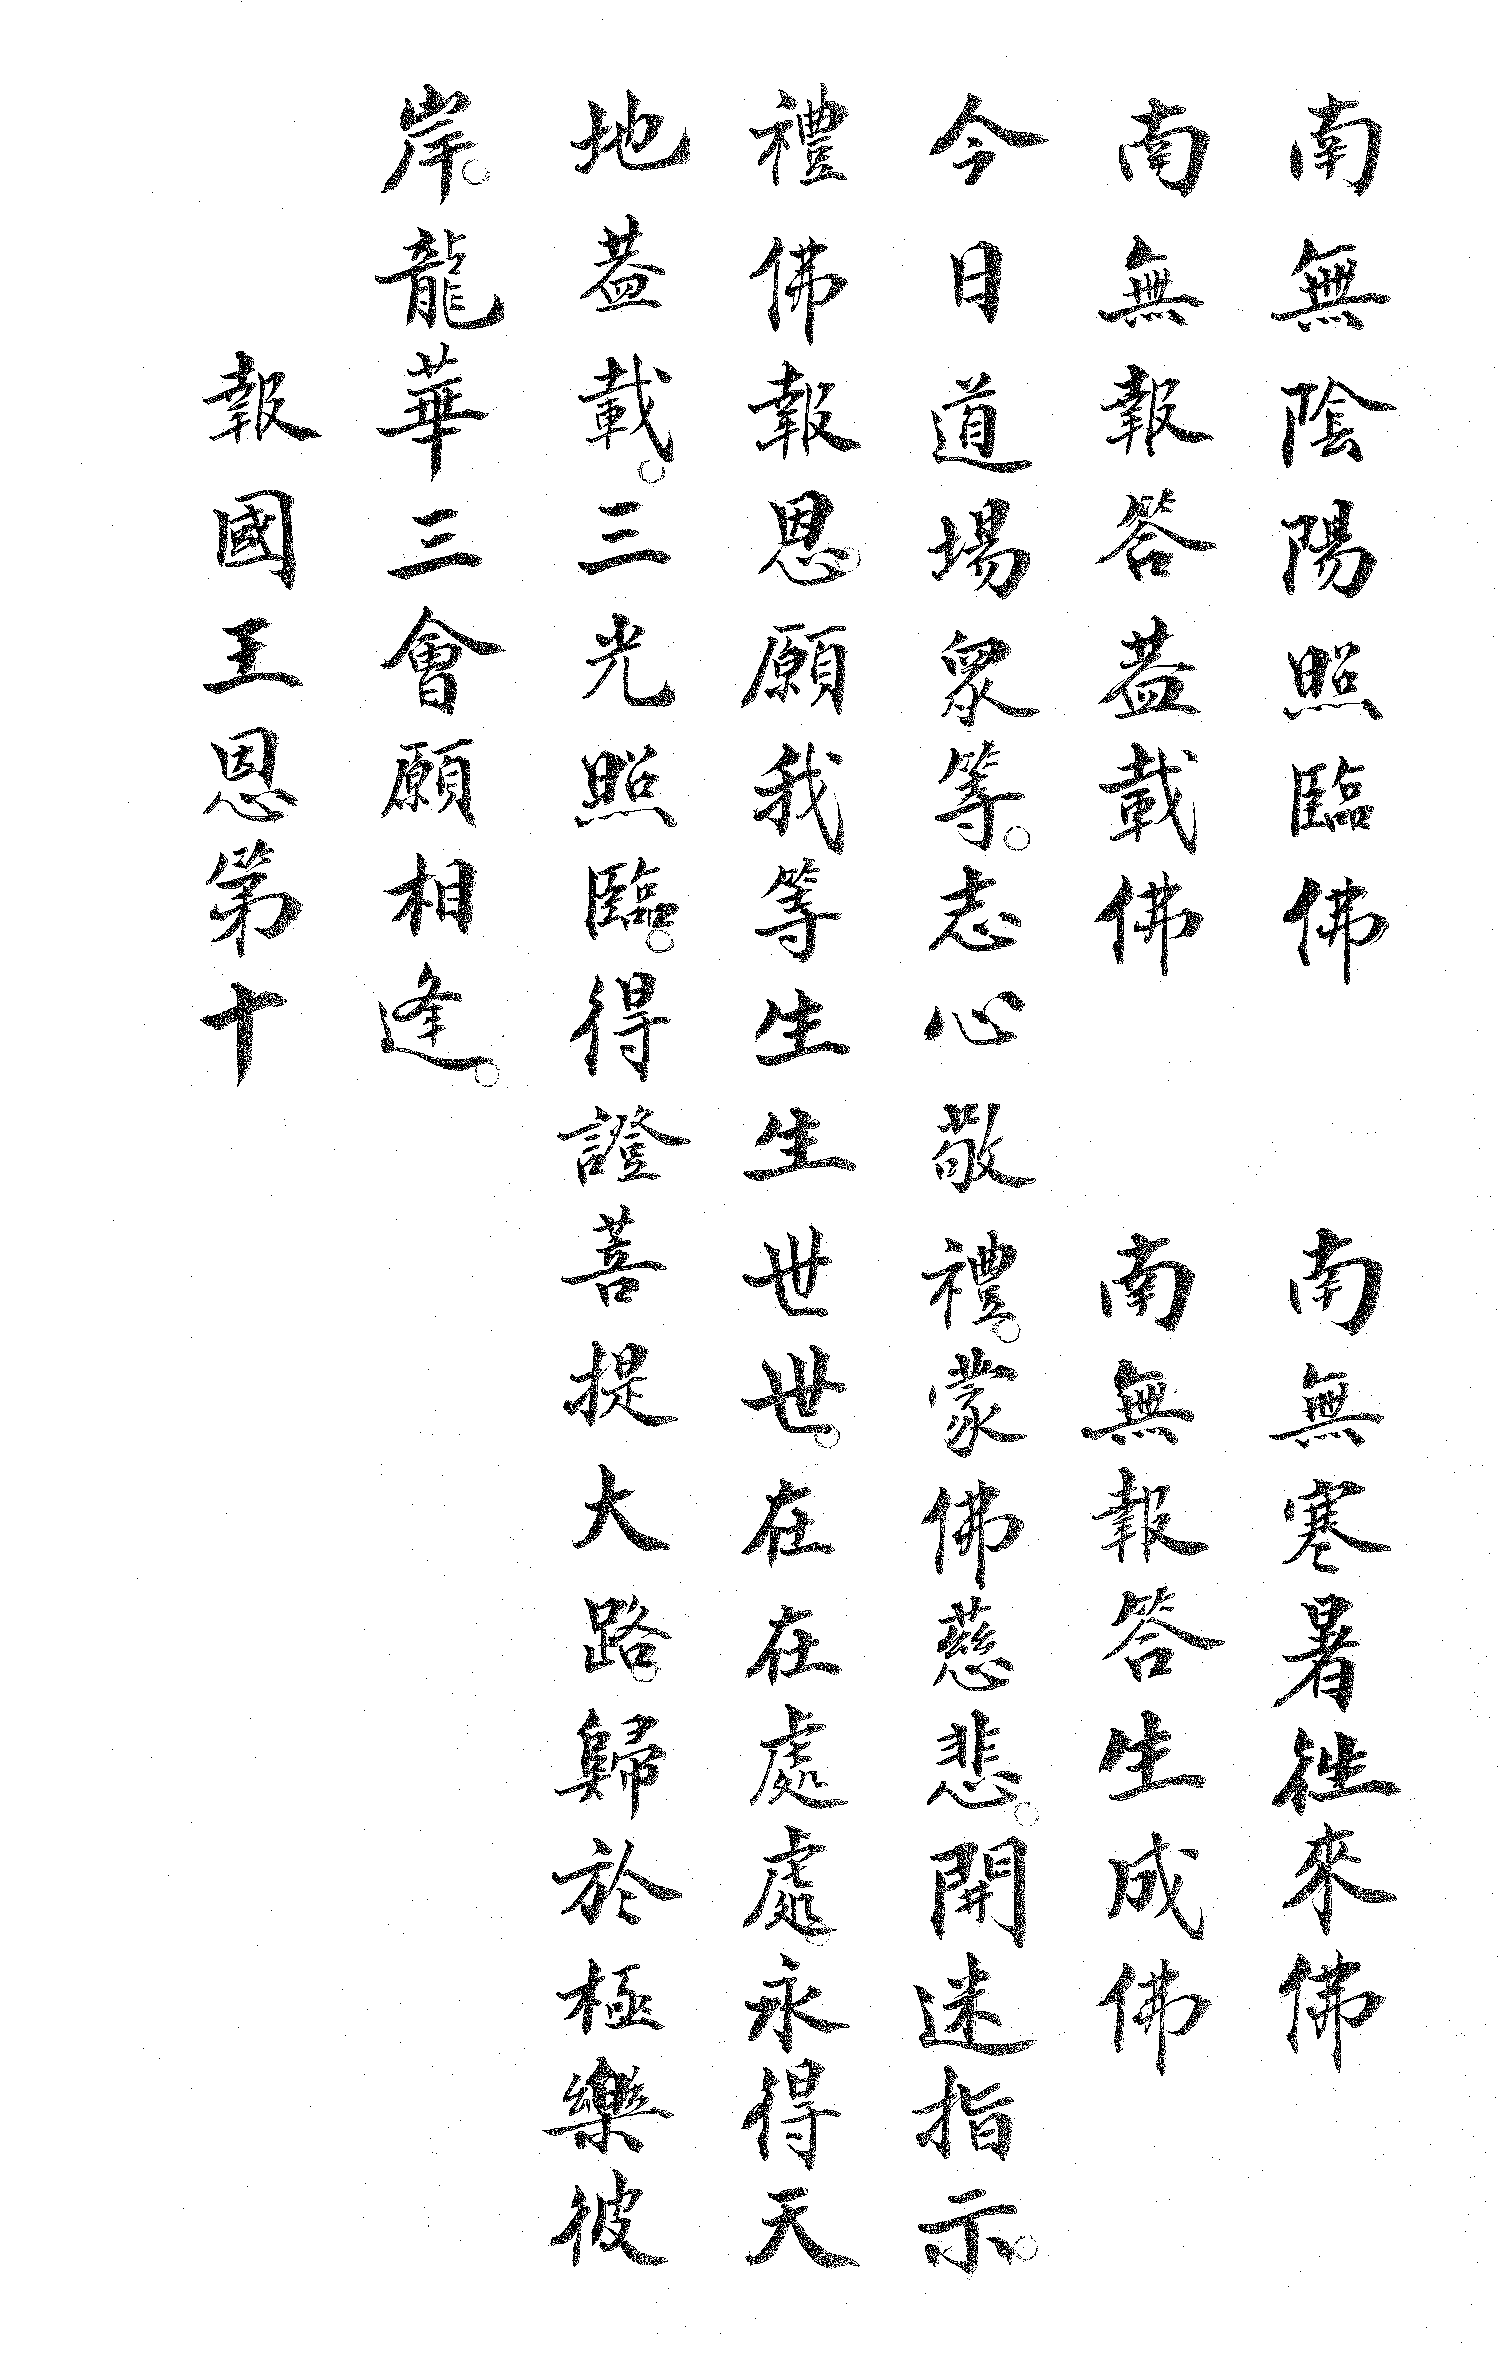 南無陰陽照臨佛　南無寒暑徃來佛
南無報答葢載佛　南無報答生成佛
今日道場衆等。志心敬禮。蒙佛慈悲。開迷指示。
禮佛報恩。願我等生生世世。在在處處。永得天
地葢載。三光照臨。得證菩提大路。歸於極樂彼
岸。龍華三會願相逢。
報國王恩第十